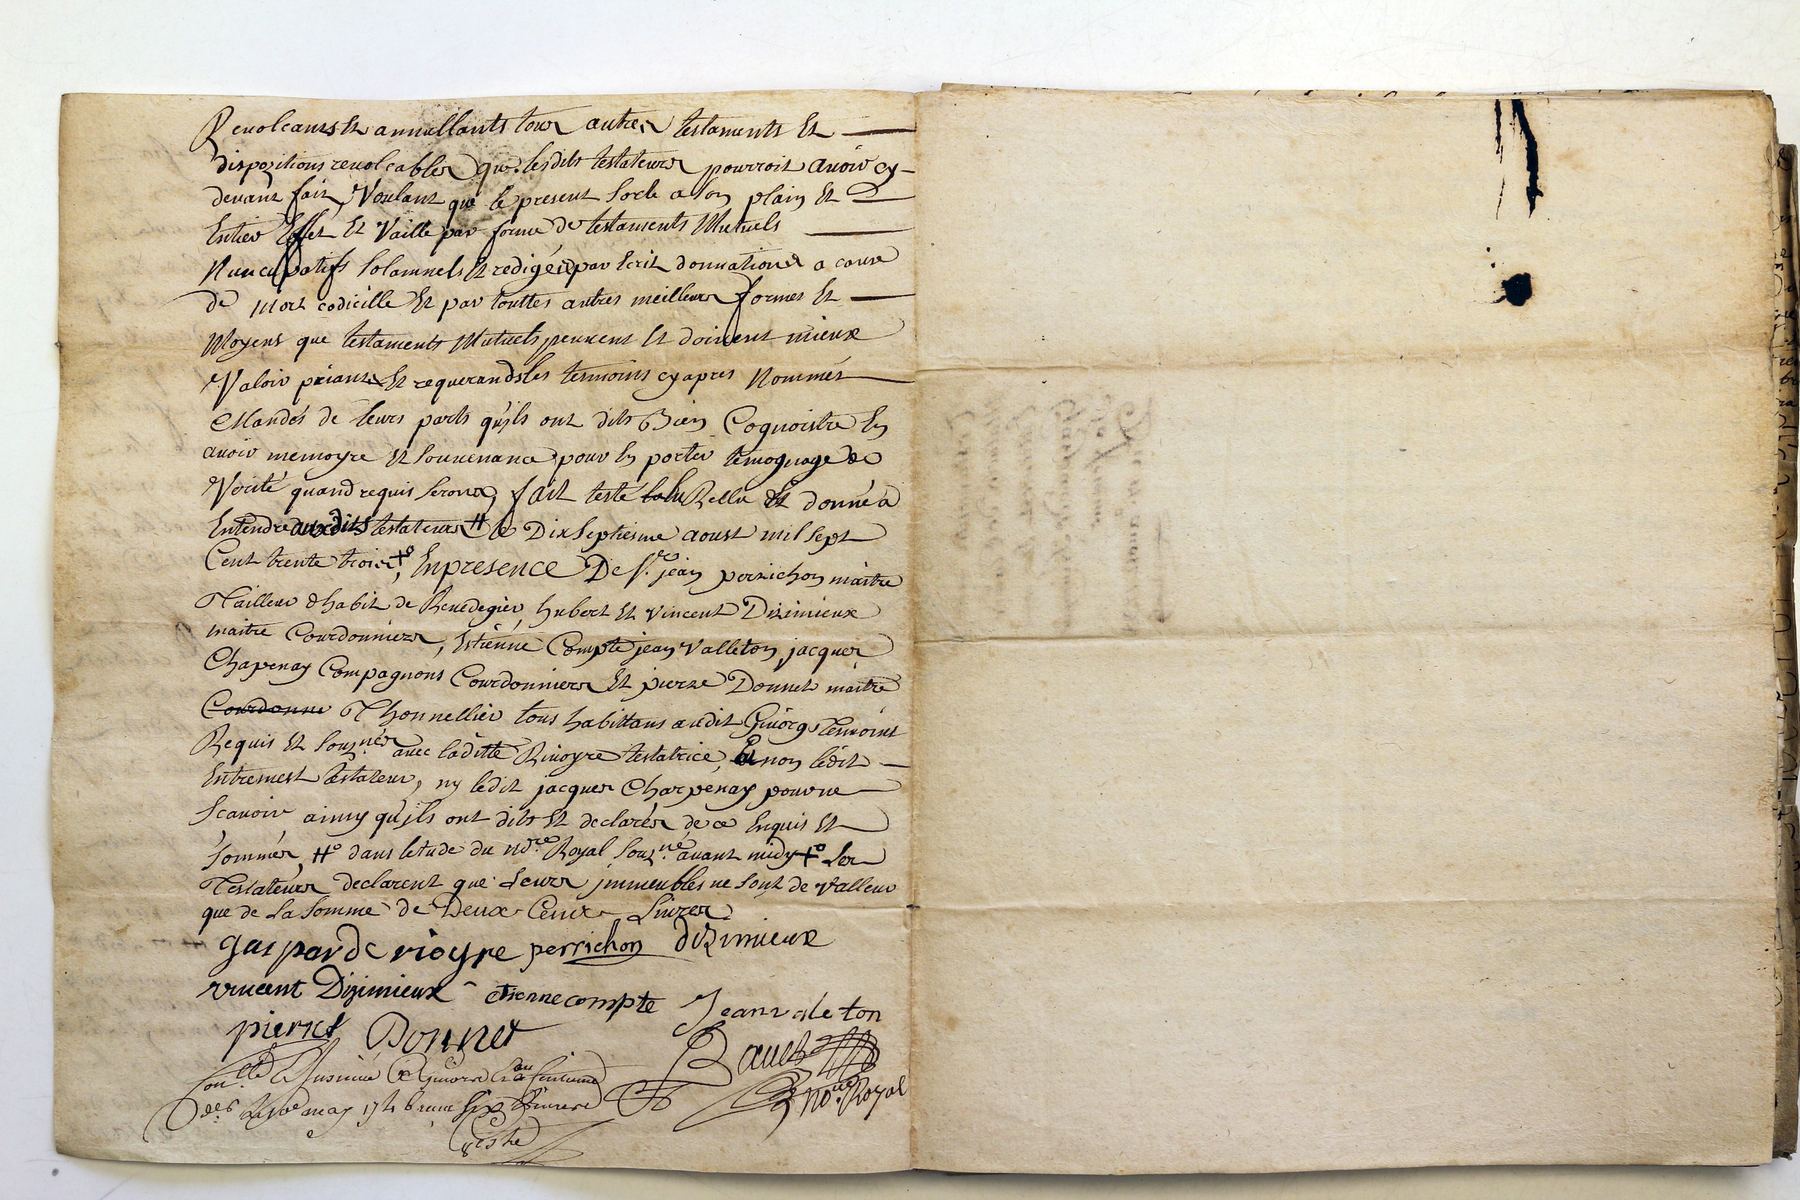 Revoleants Et annullants tous autres testaments Et
dispozitions revolcables que lesdits testateurs pourroit avoir cy
devant fait, Voulant que le present sorte a son plain Et
Entier Effet Et Vaille par forme de testaments Mutuels
Nuncupatifs solamnels Et redigés par Ecrit donnations a cause
de mort codicille Et par touttes autres meilleurs formes Et
Moyens que testaments Mutuels peuvent Et doivent mieux
Valoir priants Et requerands les temoins cy apres Nommés
Mandés de leurs parts qu'jls ont dits Bien Cognoistre En
avoir memoyre Et souvenance pour En porter temognage de
Verité quand requis seronts, fait testé Rellu Et donné a
Entendre auxdits testateurs # le Dix Septiesme aoust mil sept
Cent trente trois +°, En presence De Sr. jean perrichon maitre
Tailleur d'habit de hubert Et vincent Dizimieux
maitre Courdonniers, Estienne Compte jean Valleton jacques
Chapenay Compagnons Courdonniers Et pierre Donnet maitre
Courdonne Thonnellier tous habittans audit temoins
Requis Et souznés avec laditte Rioyre testatrice, Et non ledit
Entremest testateur, ny ledit jacques Charpenay pour ne
Scavoir ainsy qu'jls ont dits Et declarés de ce Enquis Et
Sommés #° dans letude du nore. Royal souzné. avant midy +° Les
Testateurs declarent que leurs jmmeubles ne sont de Valleur
que de La somme de Deux Cents Livres
gasparde rioyre perrichon dizimieux
vincent Dizimieux etienne compte Jean valeton
pierre Donnet
Nore. Royal